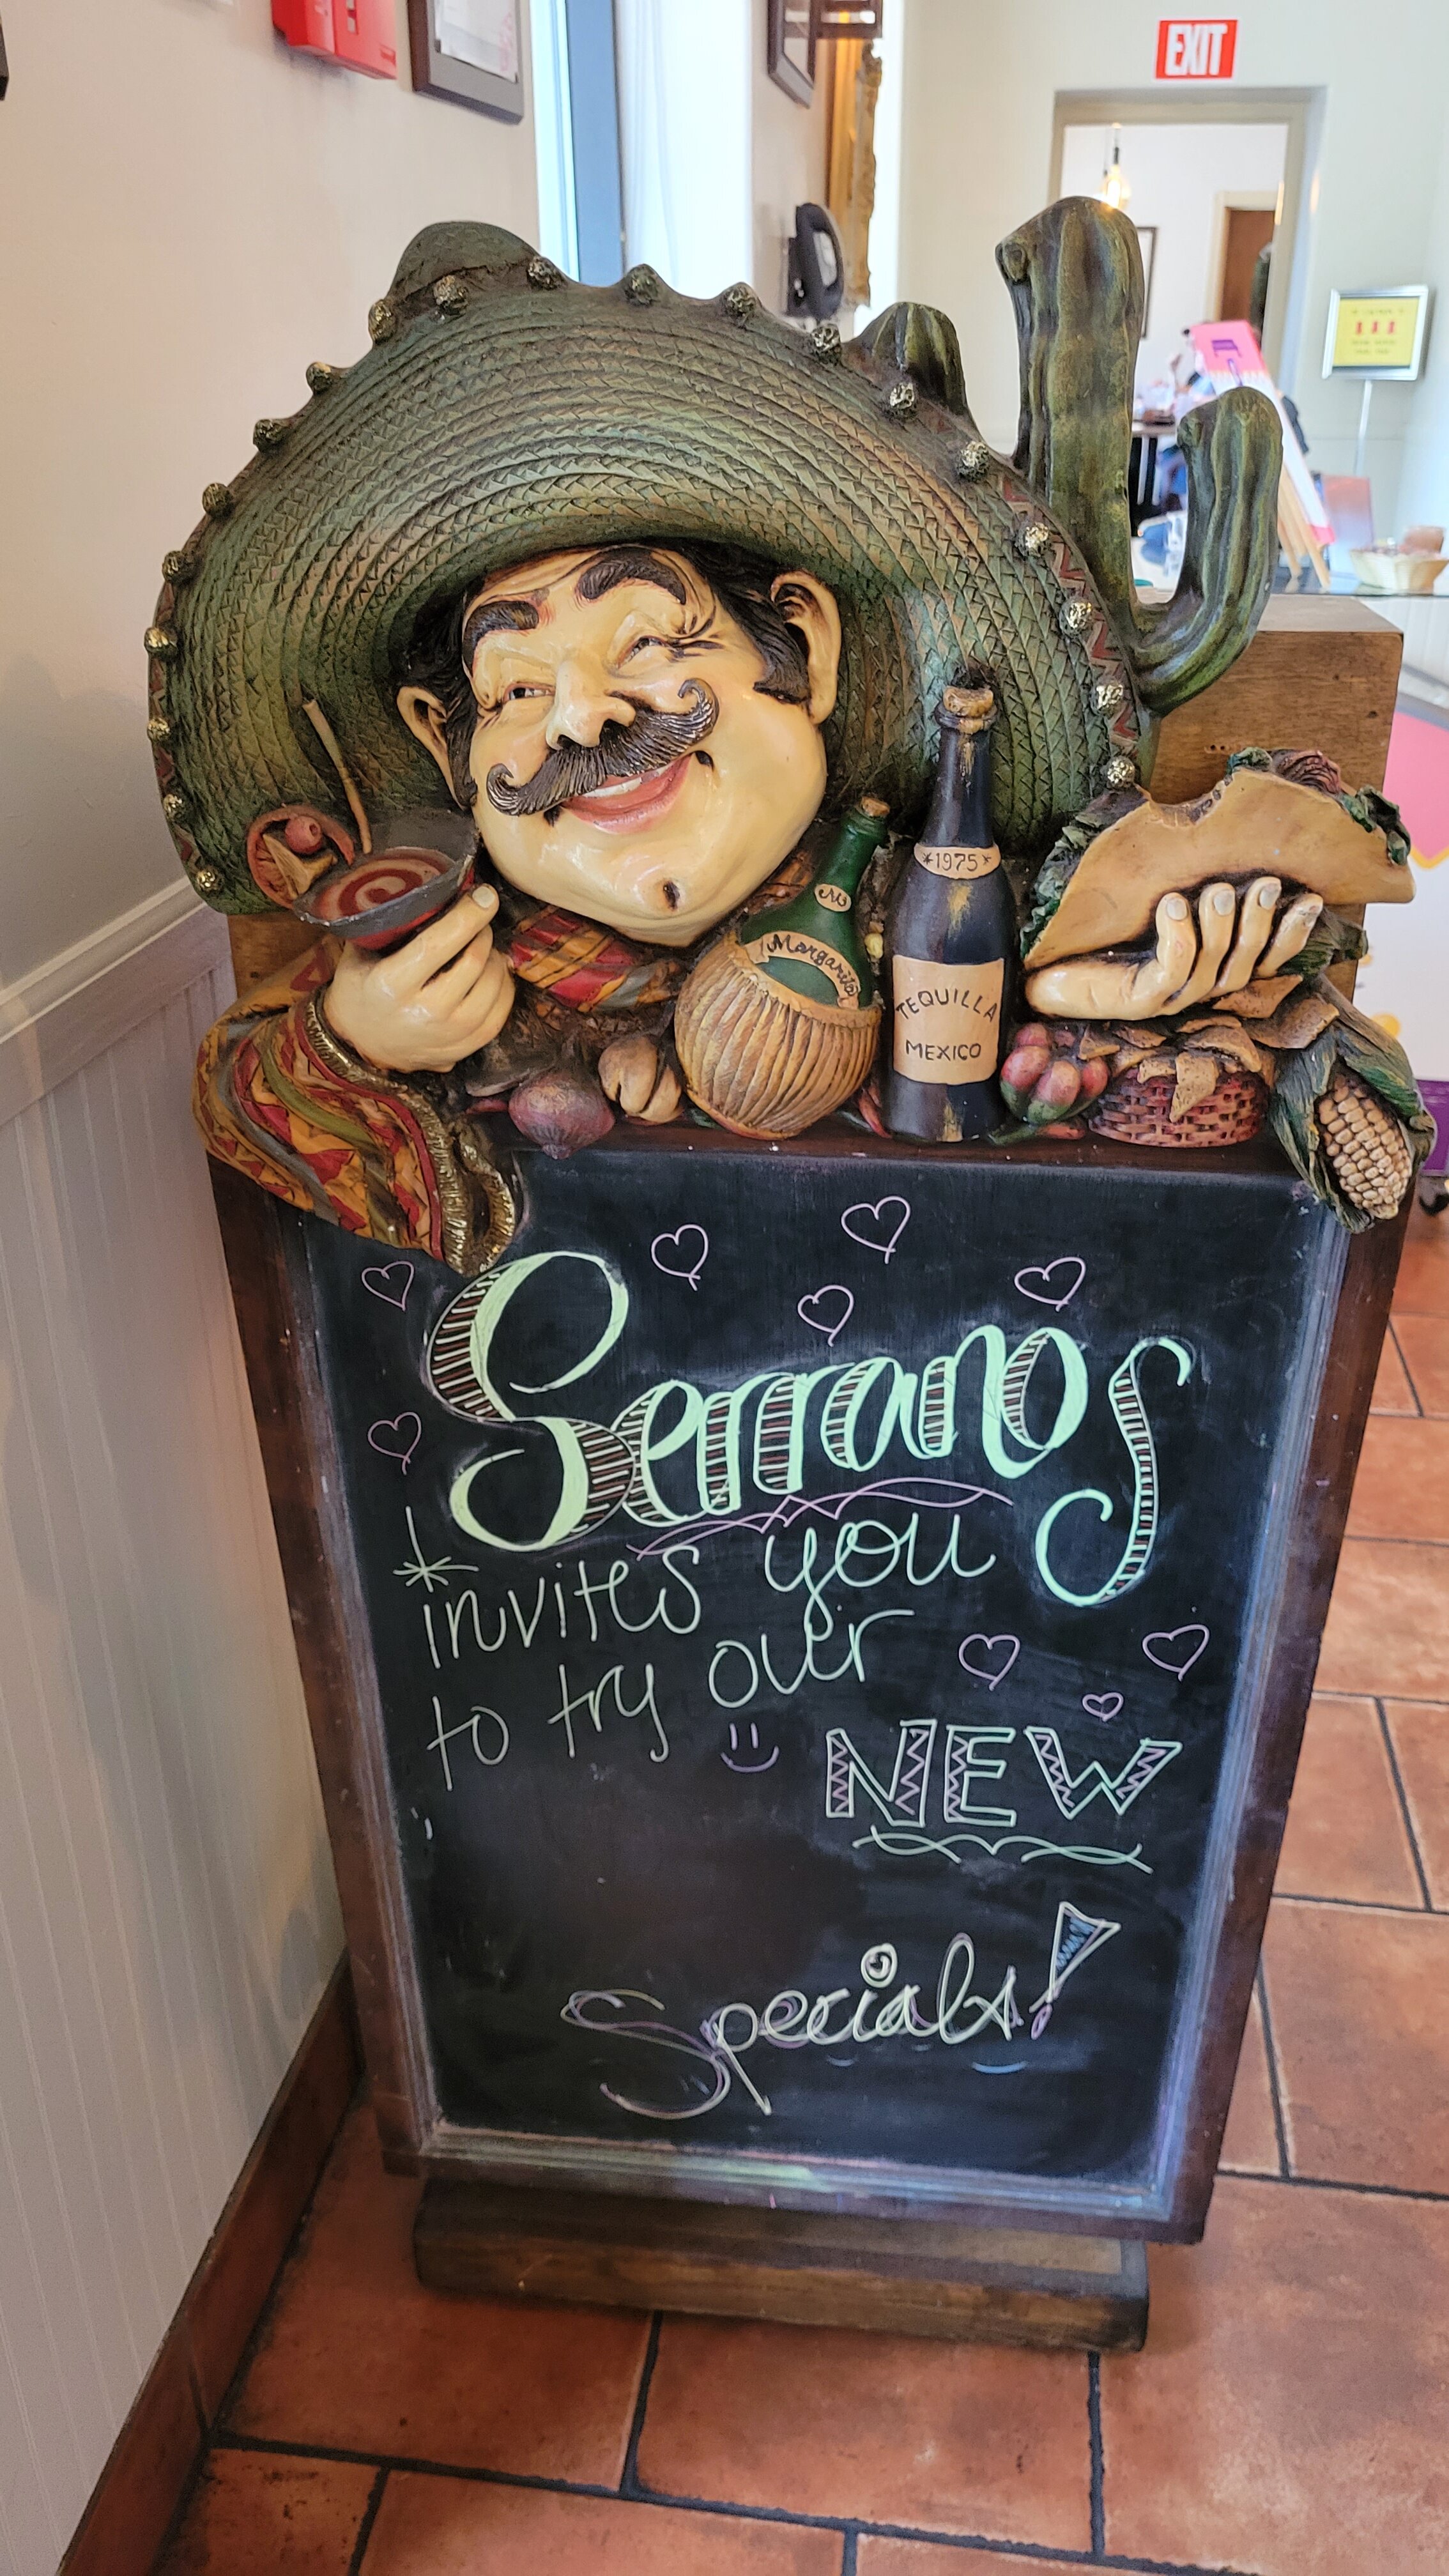 EXIT
*1975*
Margarita
TEQUILLA
MEXICO
Serranos
*invites you
to try our
NEW
Specials!